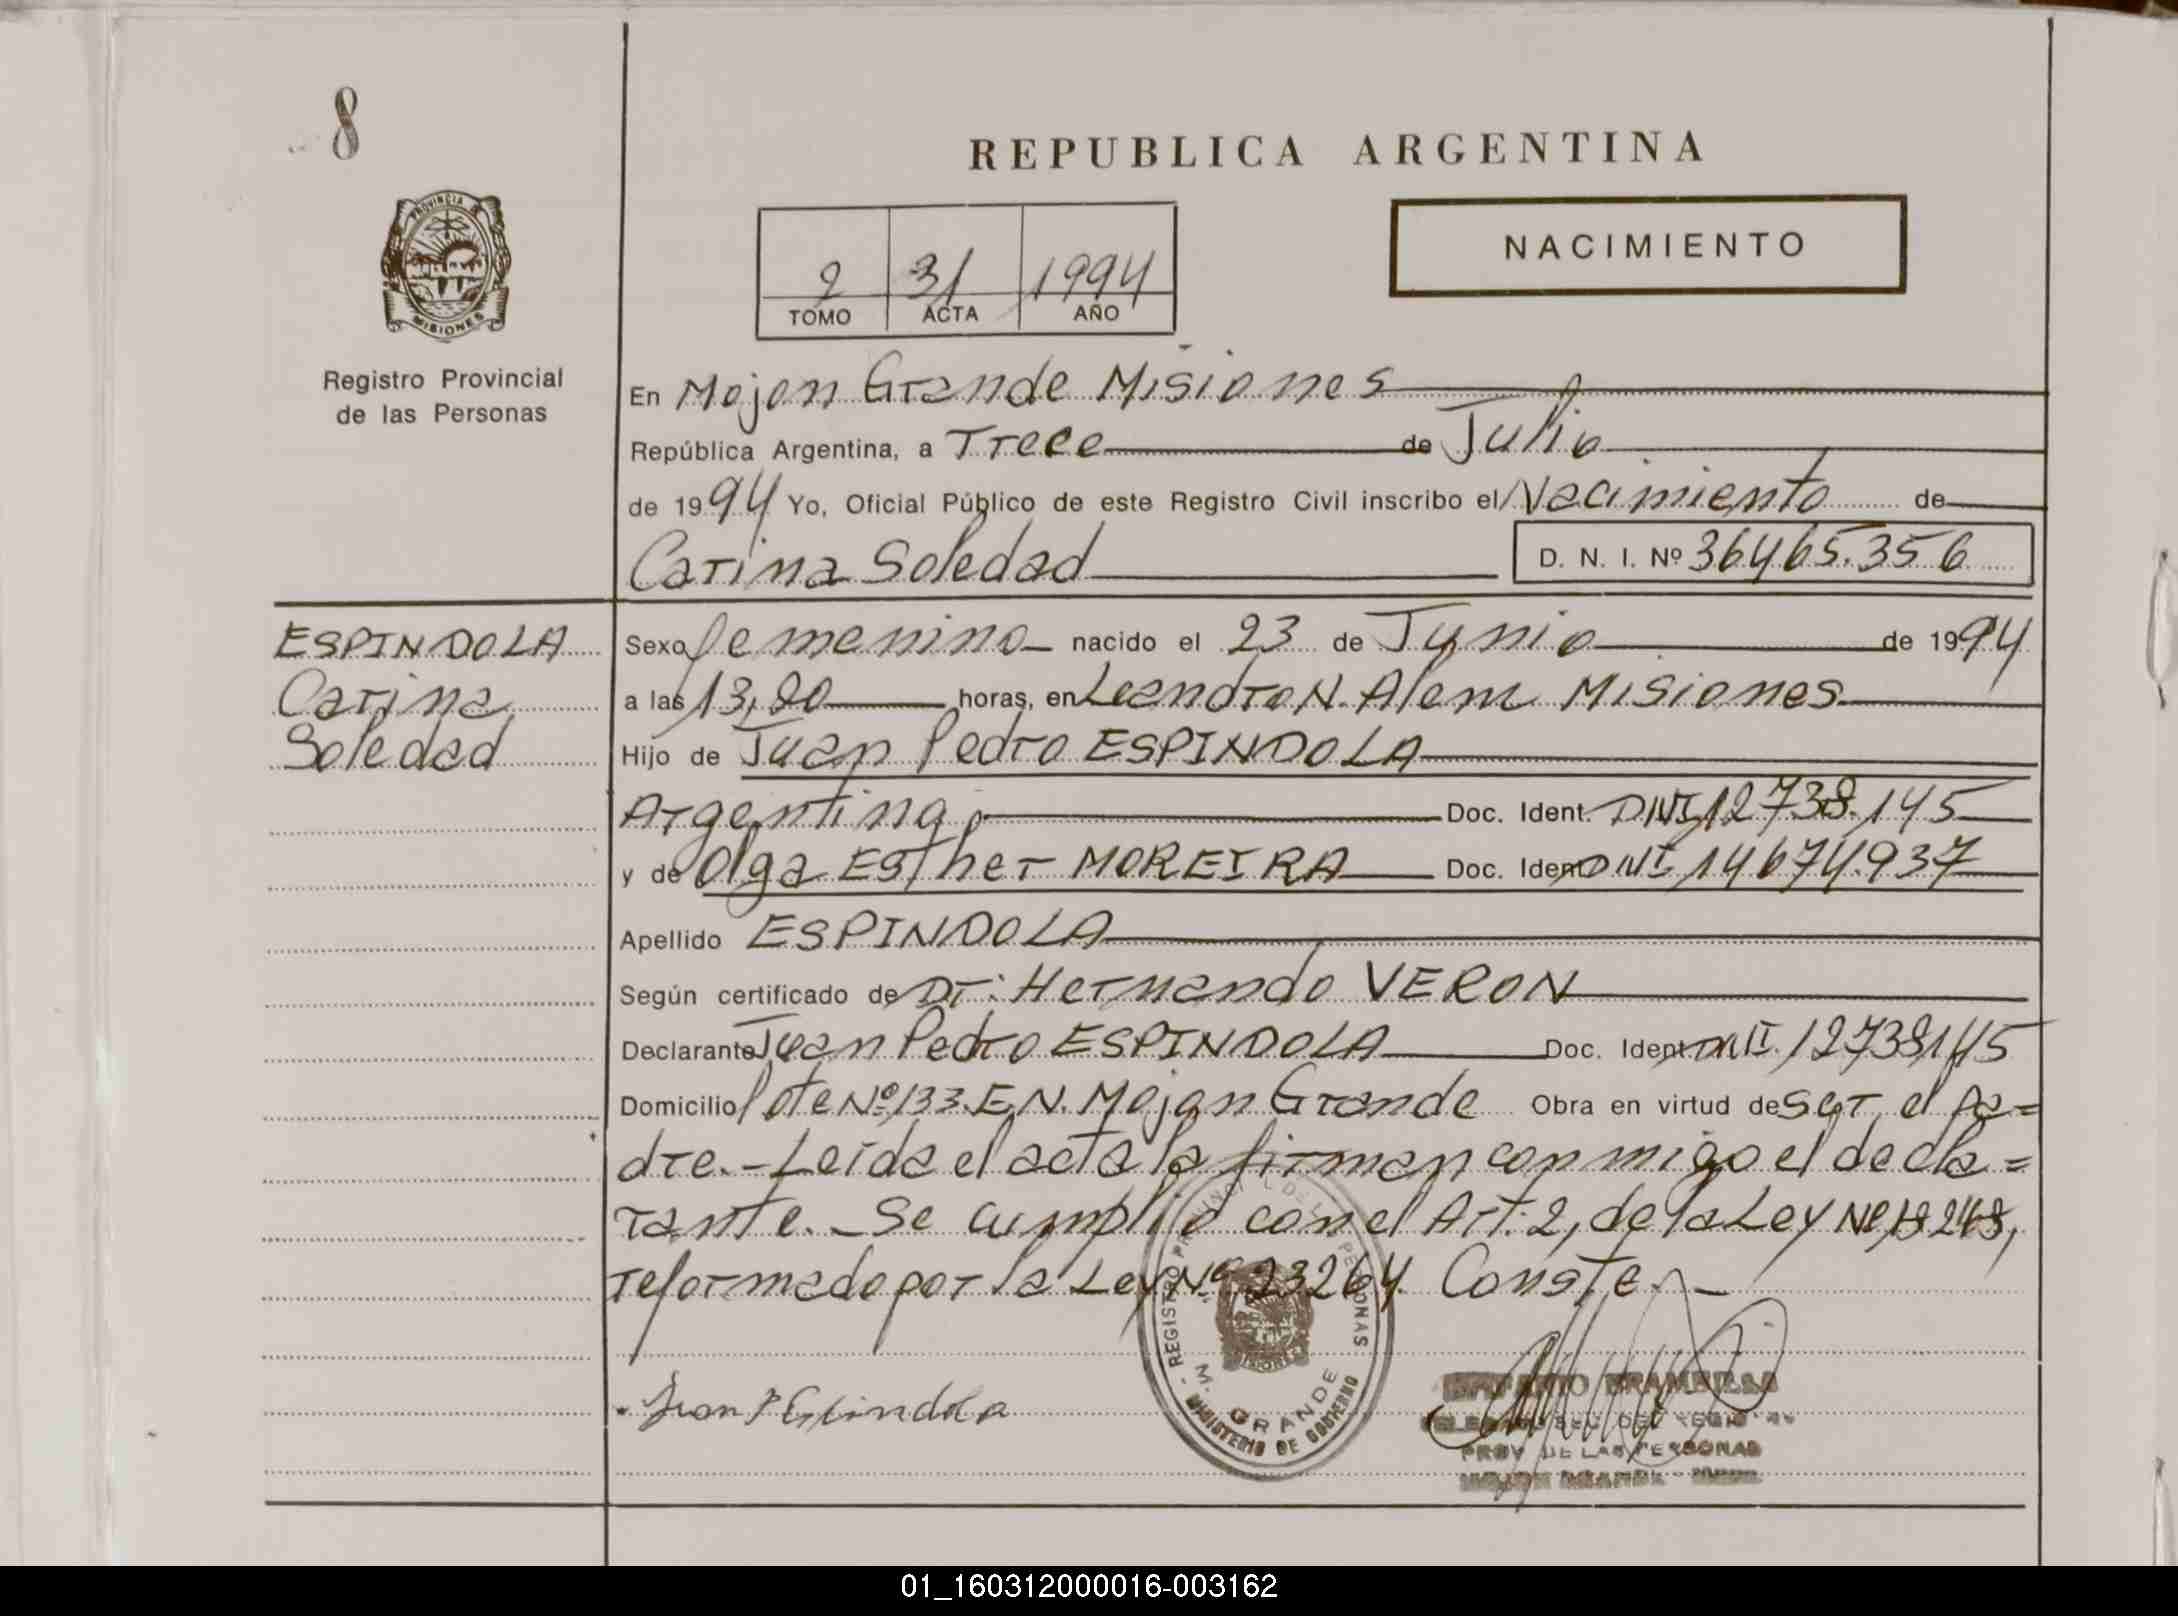 8
REPUBLICA ARGENTINA
PROVINCIA DE
MISIONES
2 31 1994
TOMO ACTA AÑO
NACIMIENTO
Registro Provincial
de las Personas
En Mojon Grande Misiones
República Argentina, a Trece de Julio
de 1994 Yo, Oficial Público de este Registro Civil inscribo el Nacimiento de
Carina Soledad D. N. I. Nº 36465.356
ESPINDOLA
Carina
Soledad
Sexo femenino nacido el 23 de Junio de 1994
a las 13,20 horas, en Leandro N. Alem Misiones
Hijo de Juan Pedro ESPINDOLA
Argentino Doc. Ident. DNI 12738.145
y de Olga Esther MOREIRA Doc. Ident DNI 14674.937
Apellido ESPINDOLA
Según certificado de Dr: Hernando VERON
Declarante Juan Pedro ESPINDOLA Doc. Ident DNI. 12738145
Domicilio lote Nº 133 E.N. Mojon Grande Obra en virtud de ser el pa=
dre.- Leida el acta la firman conmigo el decla=
rante. - Se cumplio con el Art. 2, de la Ley Nº 18248,
reformado por la Ley Nº 23264. Conste. -
REGISTRO PROVINCIAL DE LAS PERSONAS
M. GRANDE
MINISTERIO DE GOBIERNO
Juan P Espindola
PROV DE LAS PERSONAS
01_160312000016-003162